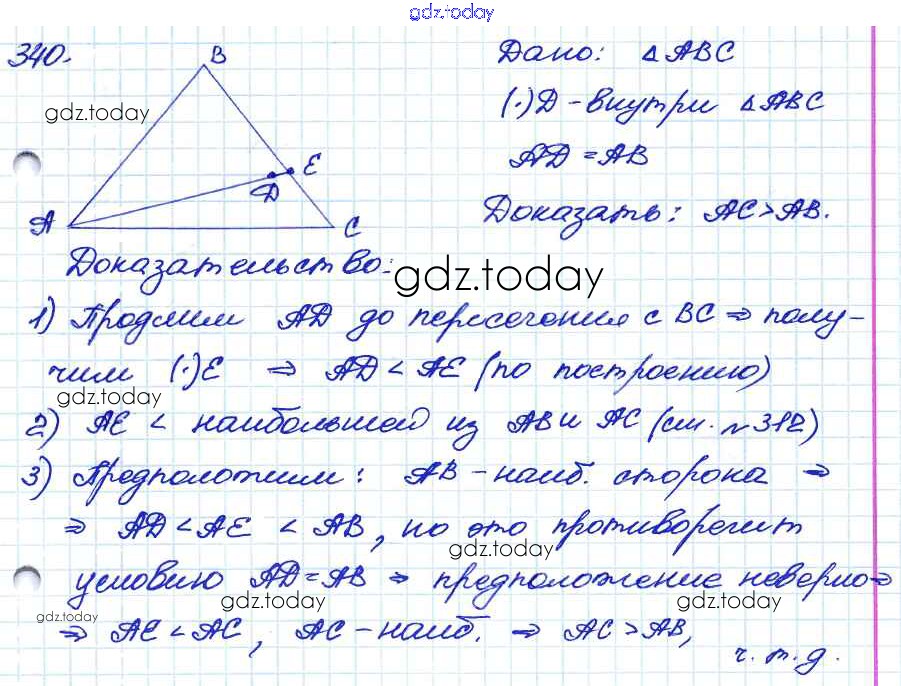 gdz.today
340.
B
Дано: △ABC
gdz.today
(·)D - внутри △ABC
E
AD = AB
D
A
C
Доказать: AC > AB.
Доказательство:
gdz.today
1) Продлим AD до пересечения с BC ⇒ полу-
чим (·)E ⇒ AD < AE (по построению)
gdz.today
2) AE < наибольшей из AB и AC (см. №312)
3) Предположим: AB - наиб. сторона ⇒
⇒ AD < AE < AB, но это противоречит
gdz.today
условию AD = AB ⇒ предположение неверно ⇒
gdz.today gdz.today
gdz.today
⇒ AE < AC, AC - наиб. ⇒ AC > AB,
ч. т. д.